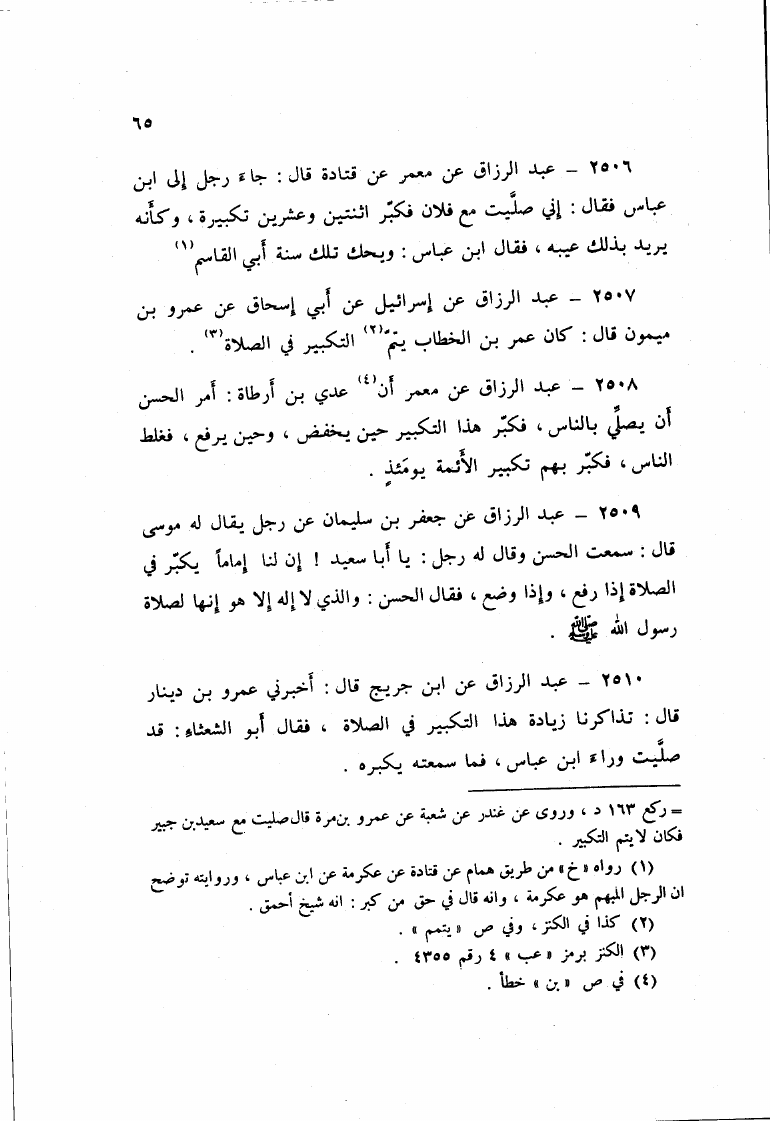 ٦٥
٢٥٠٦ – عبد الرزاق عن معمر عن قتادة قال : جاءَ رجل إلى ابن
عباس فقال : إني صلَّيت مع فلان فكبّر اثنتين وعشرين تكبيرة ، وكأَنه
يريد بذلك عيبه ، فقال ابن عباس : ويحك تلك سنة أَبي القاسم(١)
٢٥٠٧ – عبد الرزاق عن إسرائيل عن أَبي إسحاق عن عمرو بن
ميمون قال : كان عمر بن الخطاب يتمّ(٢) التكبير في الصلاة(٣) .
٢٥٠٨ – عبد الرزاق عن معمر أَن(٤) عدي بن أَرطاة : أَمر الحسن
أَن يصلِّي بالناس ، فكبّر هذا التكبير حين يخفض ، وحين يرفع ، فغلط
الناس ، فكبّر بهم تكبير الأَئمة يومَئذٍ .
٢٥٠٩ – عبد الرزاق عن جعفر بن سليمان عن رجل يقال له موسى
قال : سمعت الحسن وقال له رجل : يا أَبا سعيد ! إن لنا إماماً يكبّر في
الصلاة إذا رفع ، وإذا وضع ، فقال الحسن : والذي لا إله إلا هو إنها لصلاة
رسول الله ﷺ .
٢٥١٠ – عبد الرزاق عن ابن جريج قال : أَخبرني عمرو بن دينار
قال : تذاكرنا زيادة هذا التكبير في الصلاة ، فقال أَبو الشعثاء : قد
صلَّيت وراءَ ابن عباس ، فما سمعته يكبره .
= ركع ١٦٣ د ، وروى عن غندر عن شعبة عن عمرو بن مرة قال صليت مع سعيد بن جبير
فكان لا يتم التكبير .
(١) رواه «خ» من طريق همام عن قتادة عن عكرمة عن ابن عباس ، وروايته توضح
ان الرجل المبهم هو عكرمة ، وانه قال في حق من كبر : انه شيخ أحمق .
(٢) كذا في الكنز ، وفي ص «يتمم» .
(٣) الكنز برمز «عب» ٤ رقم ٤٣٥٥ .
(٤) في ص «بن» خطأ .